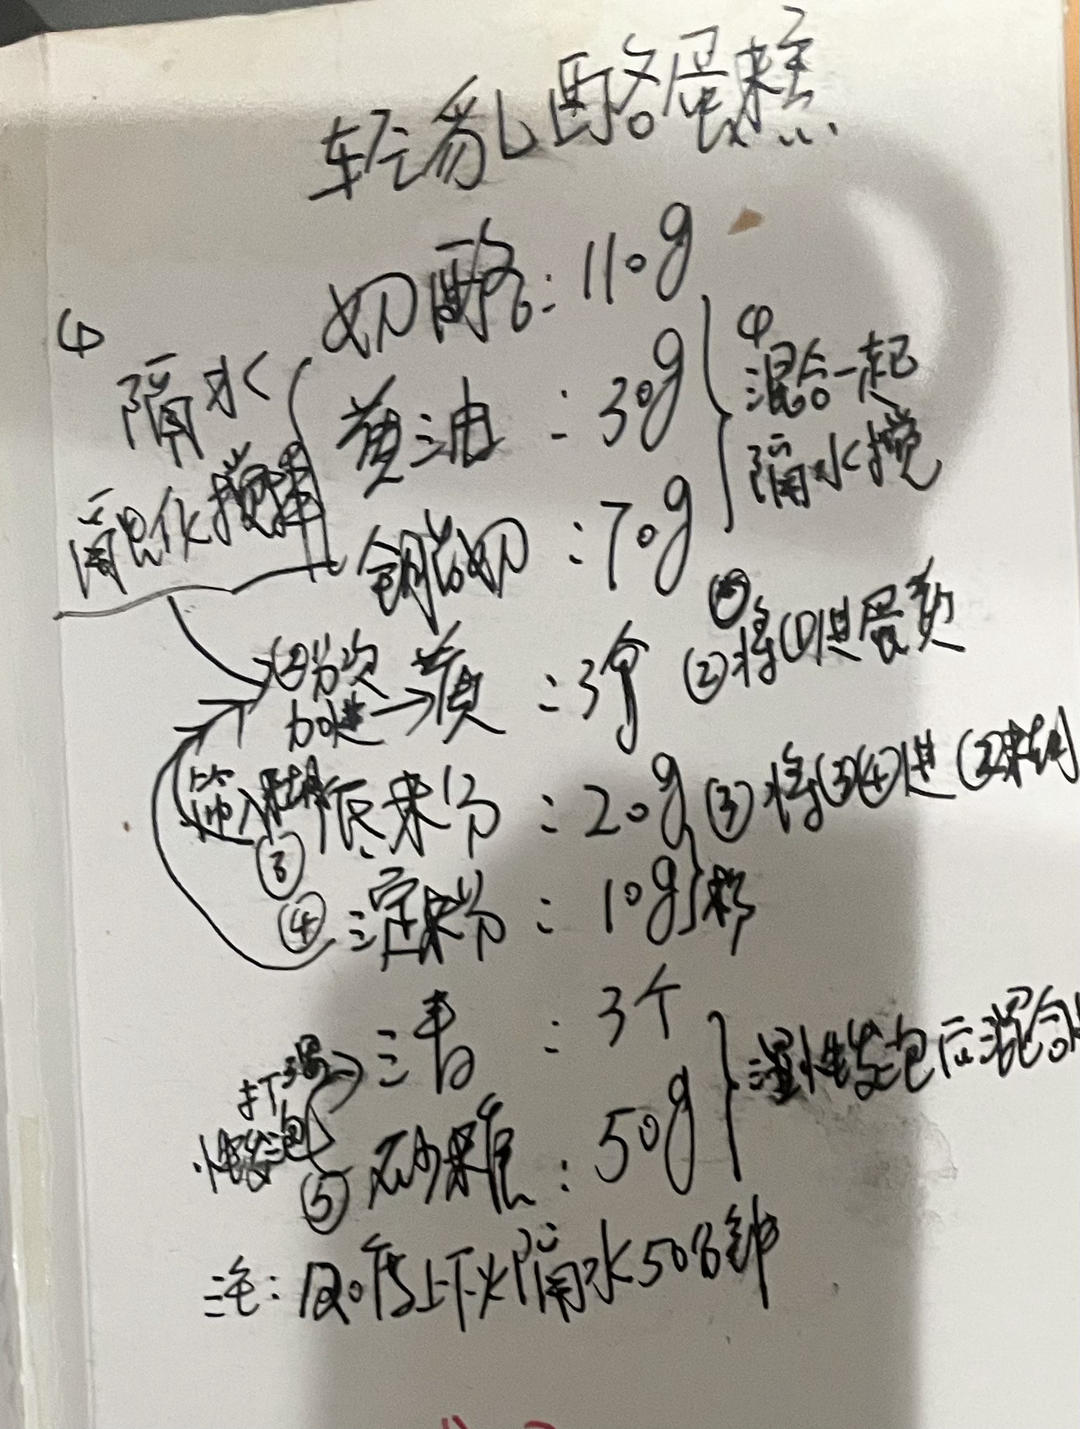 轻乳酪蛋糕
奶酪：110g
① 隔水
黄油：30g
① 混合一起
隔水搅
融化搅拌
全脂奶：70g
分次
加进→黄：3个 ②将①进蛋黄
筛入
③ 低粉：20g ③将③④进②
④ 淀粉：10g
清：3个
打 湿
性发泡
湿性发泡后混合
⑤ 砂糖：50g
注：度上下火隔水50分钟